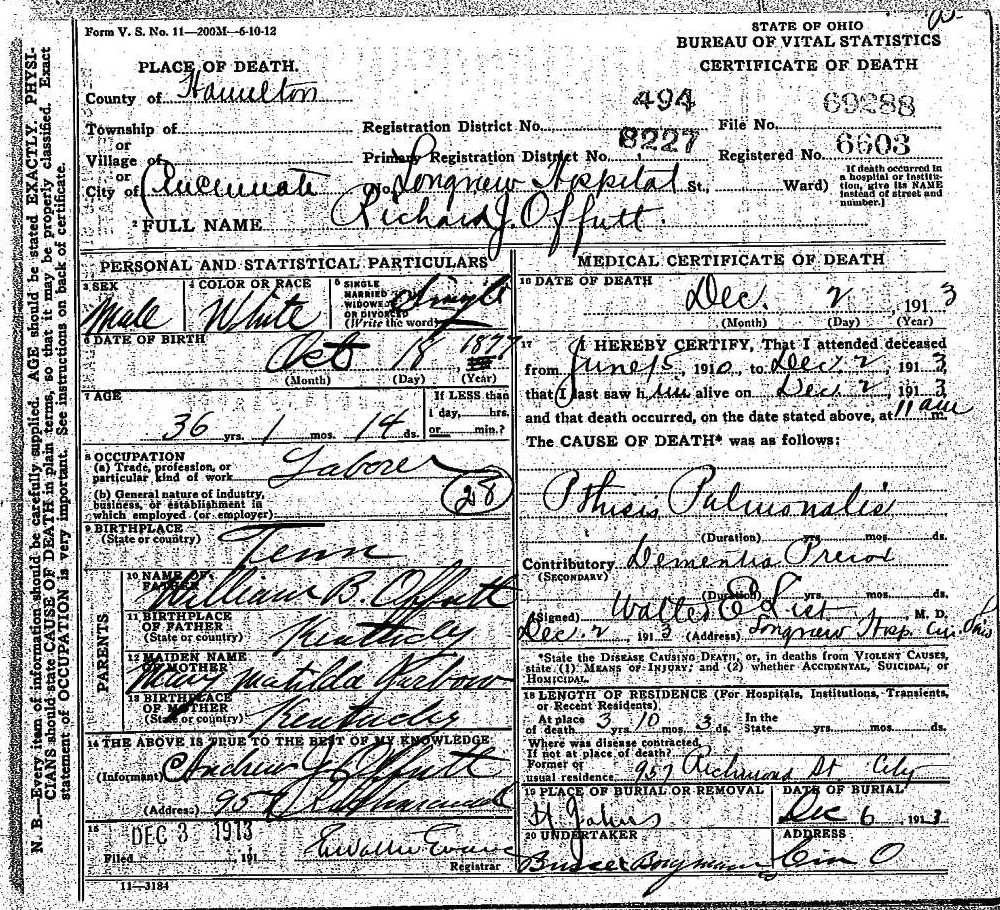 Form V. S. No. 11—200M—6-10-12
STATE OF OHIO
BUREAU OF VITAL STATISTICS
CERTIFICATE OF DEATH
PLACE OF DEATH.
County of Hamilton
Township of
or
Village of
or
City of Cincinnati
Registration District No. 494
File No. 69288
Primary Registration District No. 8227
Registered No. 6603
No. Longview Hospital St., Ward)
[If death occurred in a hospital or institution, give its NAME instead of street and number.]
2 FULL NAME Richard J. Offutt.
PERSONAL AND STATISTICAL PARTICULARS
3 SEX
Male
4 COLOR OR RACE
White
5 SINGLE
MARRIED
WIDOWED
OR DIVORCED
(Write the word)
Single
6 DATE OF BIRTH
Oct 18 1877
(Month) (Day) (Year)
7 AGE
36 yrs. 1 mos. 14 ds.
If LESS than
1 day, hrs.
or min.?
8 OCCUPATION
(a) Trade, profession, or
particular kind of work
Laborer
(b) General nature of industry,
business, or establishment in
which employed (or employer)
28
9 BIRTHPLACE
(State or country)
Tenn
PARENTS
10 NAME OF
FATHER
William B. Offutt
11 BIRTHPLACE
OF FATHER
(State or country)
Kentucky
12 MAIDEN NAME
OF MOTHER
Mary Matilda
13 BIRTHPLACE
OF MOTHER
(State or country)
Kentucky
14 THE ABOVE IS TRUE TO THE BEST OF MY KNOWLEDGE
(Informant) Andrew J Offutt
(Address) 957 Richmond
15
DEC 3 1913
Filed , 191
Evans
Registrar
11—3184
MEDICAL CERTIFICATE OF DEATH
16 DATE OF DEATH
Dec. 2, 1913
(Month) (Day) (Year)
17 I HEREBY CERTIFY, That I attended deceased
from June 15, 1910, to Dec. 2, 1913,
that I last saw him alive on Dec 2, 1913,
and that death occurred, on the date stated above, at 11 am m.
The CAUSE OF DEATH* was as follows:
Pthisis Pulmonalis
(Duration) yrs. mos. ds.
Contributory Dementia Precox
(SECONDARY)
(Duration) yrs. mos. ds.
(Signed) Walter E List, M. D.
Dec. 2, 1913 (Address) Longview Hosp. Cin. Ohio
*State the DISEASE CAUSING DEATH, or, in deaths from VIOLENT CAUSES,
state (1) MEANS OF INJURY; and (2) whether ACCIDENTAL, SUICIDAL, or
HOMICIDAL.
18 LENGTH OF RESIDENCE (For Hospitals, Institutions, Transients,
or Recent Residents).
At place
of death 3 yrs. 10 mos. 3 ds.
In the
State yrs. mos. ds.
Where was disease contracted,
If not at place of death?
Former or
usual residence 957 Richmond St City
19 PLACE OF BURIAL OR REMOVAL
St Johns
DATE OF BURIAL
Dec 6 1913
20 UNDERTAKER
Busse Borgmann
ADDRESS
Cin O
N. B.—Every item of information should be carefully supplied. AGE should be stated EXACTLY. PHYSI-
CIANS should state CAUSE OF DEATH in plain terms, so that it may be properly classified. Exact
statement of OCCUPATION is very important. See instructions on back of certificate.